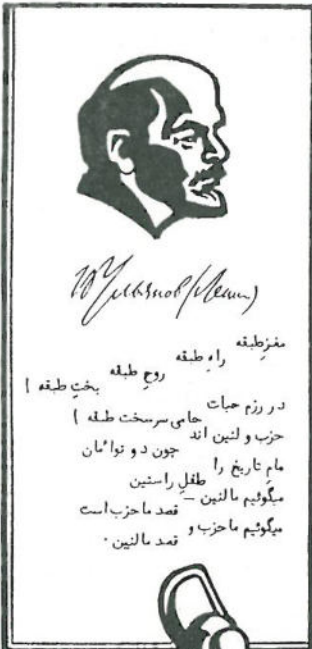 В Ульянов (Ленин)
مغزِ طبقه
راهِ طبقه
روحِ طبقه
بختِ طبقه !
در رزم حیات
حامی سرسخت طبقه !
حزب و لنین اند
چون دو توأمان
مامِ تاریخ را
طفلِ راستین
میگوئیم مالنین —
قصد ما حزب است
میگوئیم ماحزب و
قصد مالنین ·